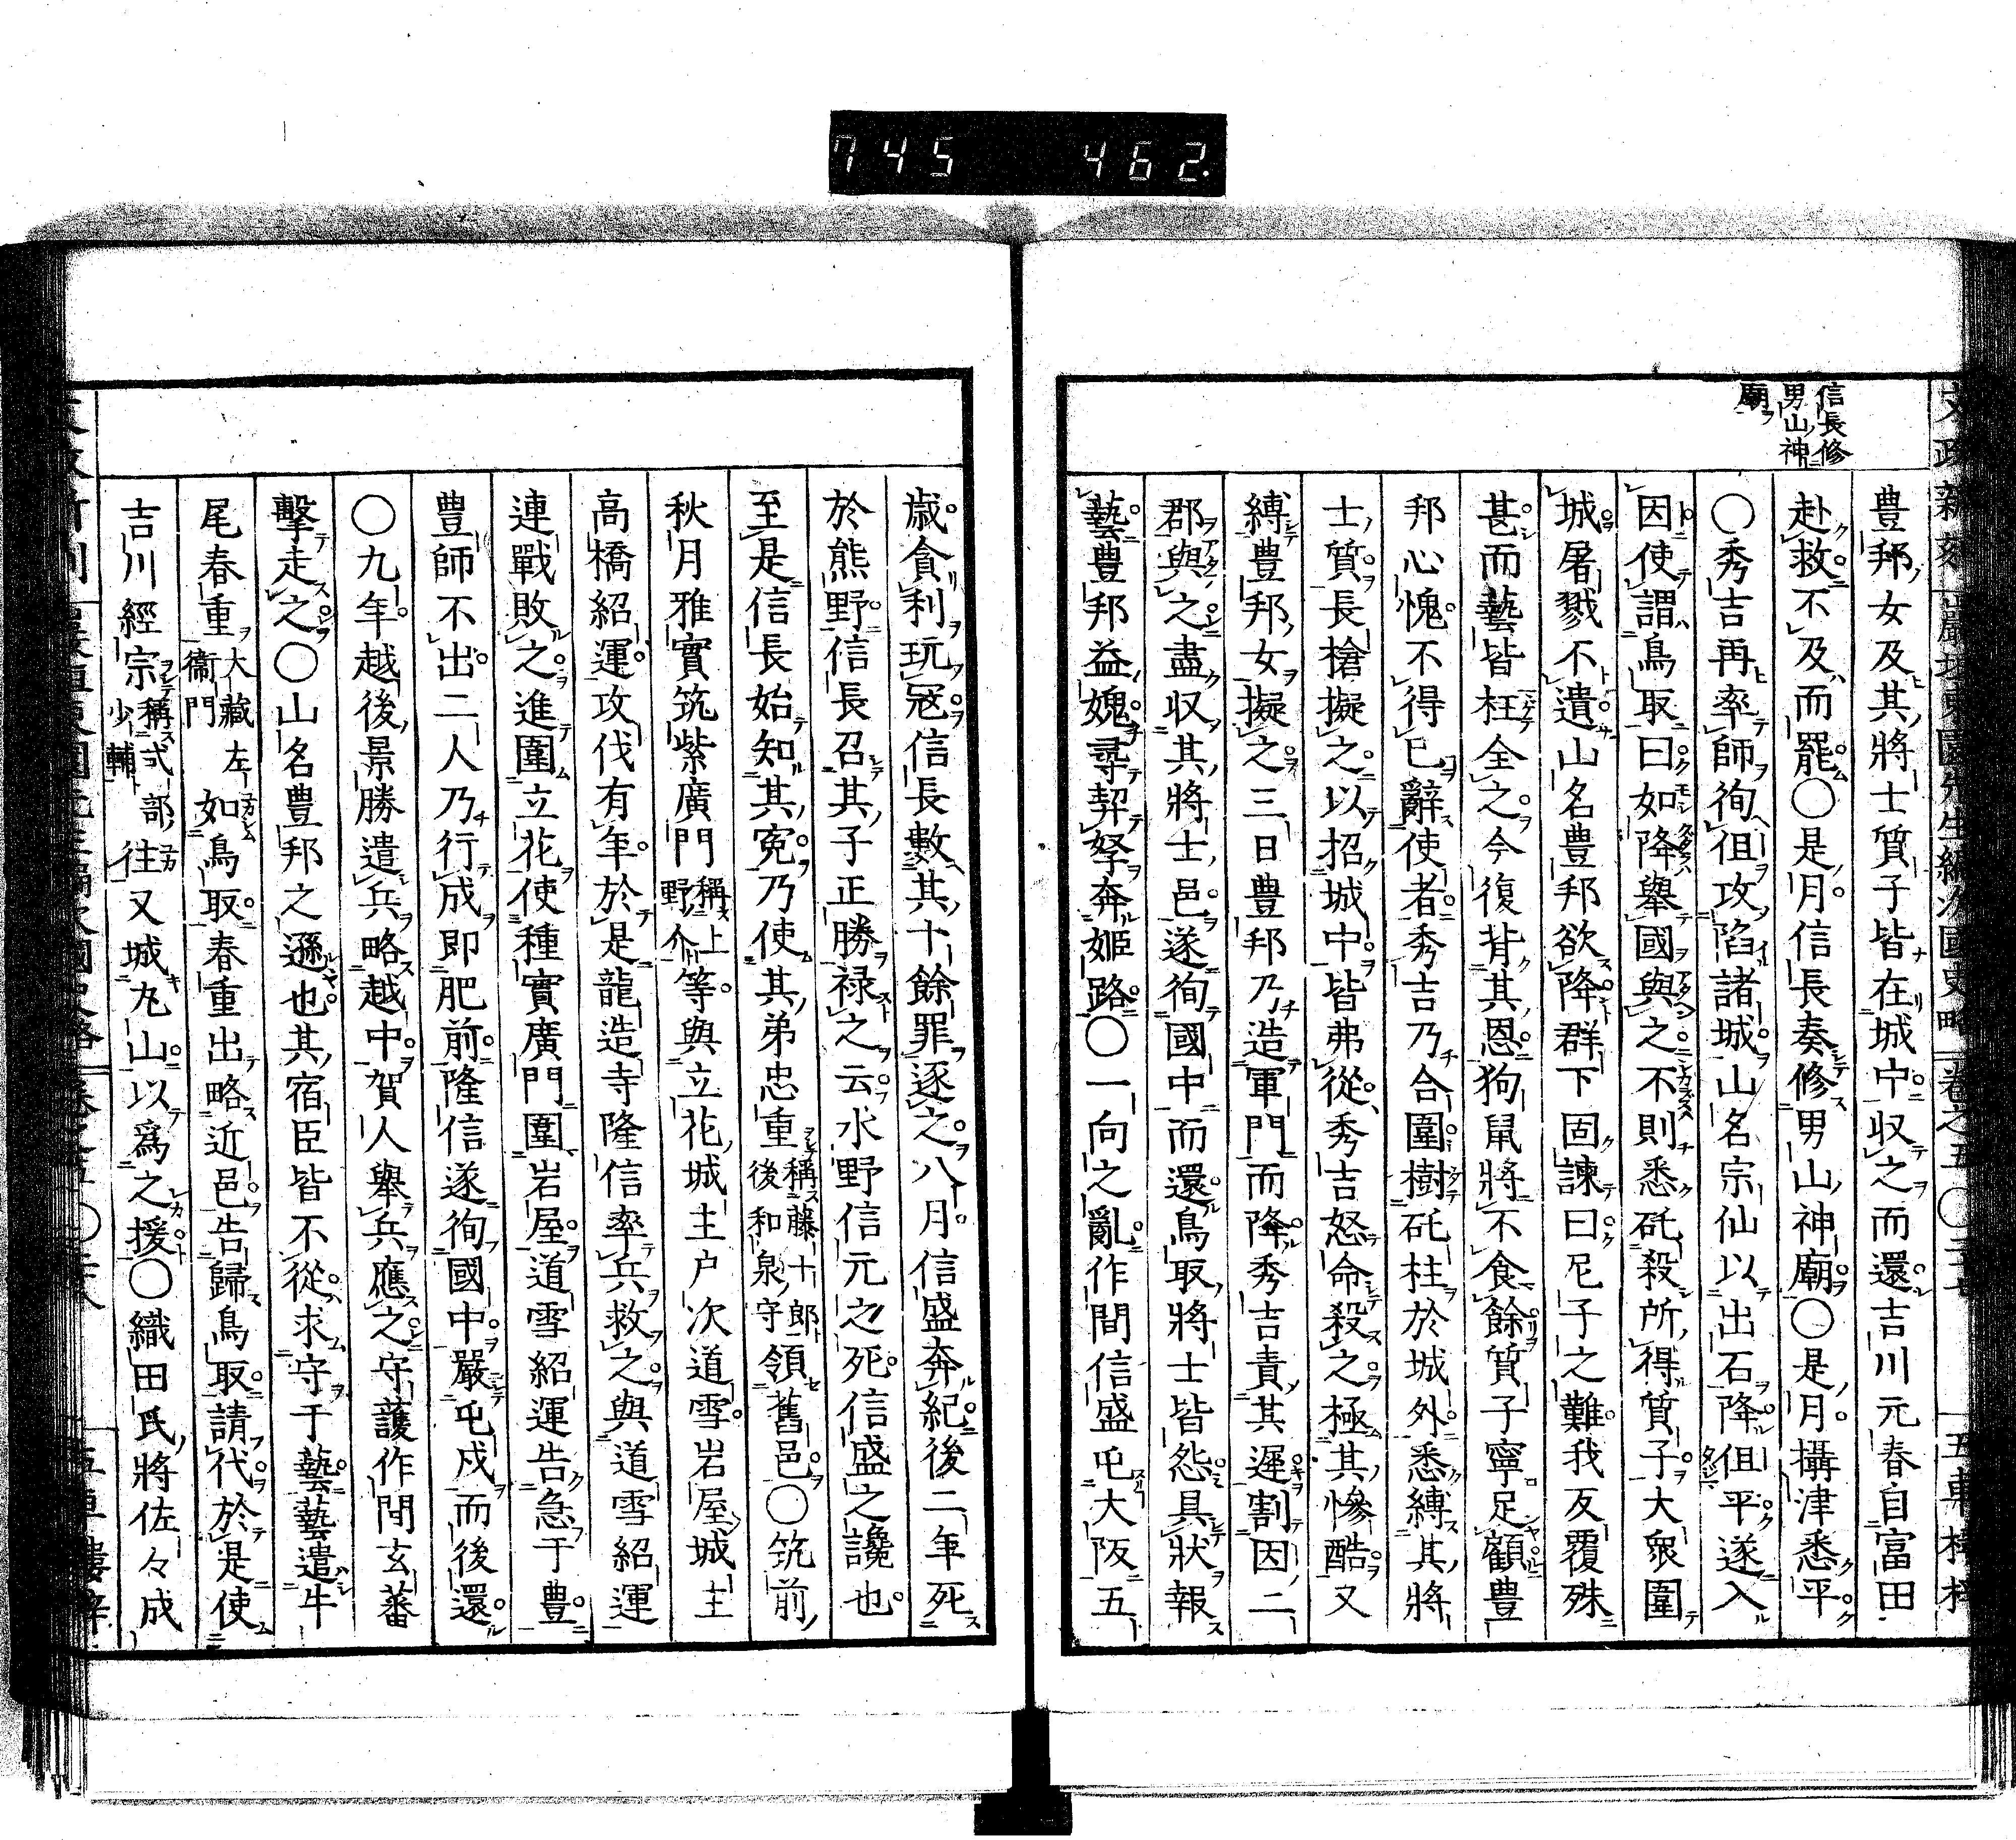 745 462.
信長修
男山神
廟
豊邦女及其將士質子皆在城中収之而還吉川元春自富田
赴救不及而罷〇是月信長奏修男山神廟〇是月攝津悉平
〇秀吉再率師徇但攻陷諸城山名宗仙以出石降但平遂入
因使謂鳥取曰如降舉國與之不則悉砥殺所得質子大衆圍
城屠戮不遺山名豊邦欲降群下固諫曰尼子之難我反覆殊
甚而藝皆枉全之今復背其恩狗鼠將不食餘質子寧足顧豊
邦心愧不得已辭使者秀吉乃合圍樹砥柱於城外悉縛其將
士質長槍擬之以招城中皆弗從秀吉怒命殺之極其慘酷又
縛豊邦女擬之三日豊邦乃造軍門而降秀吉責其遲割因二
郡與之盡収其將士邑遂徇國中而還鳥取將士皆怨具狀報
藝豊邦益媿尋挈孥奔姬路〇一向之亂作間信盛屯大阪五
歲貪利玩寇信長數其十餘罪逐之八月信盛奔紀後二年死
於熊野信長召其子正勝禄之云水野信元之死信盛之讒也
至是信長始知其寃乃使其弟忠重稱藤十郎後和泉守領舊邑〇筑前
秋月雅實筑紫廣門稱上野介等與立花城主戶次道雪岩屋城主
高橋紹運攻伐有年於是龍造寺隆信率兵救之與道雪紹運
連戰敗之進圍立花使種實廣門圍岩屋道雪紹運告急于豊
豊師不出二人乃行成即肥前隆信遂徇國中嚴屯戍而後還
〇九年越後景勝遣兵略越中賀人舉兵應之守護作間玄蕃
擊走之〇山名豊邦之遜也其宿臣皆不從求守于藝藝遣牛
尾春重大藏左衞門如鳥取春重出略近邑告歸鳥取請代於是使
吉川經宗稱式部少輔往又城丸山以為之援〇織田氏將佐々成